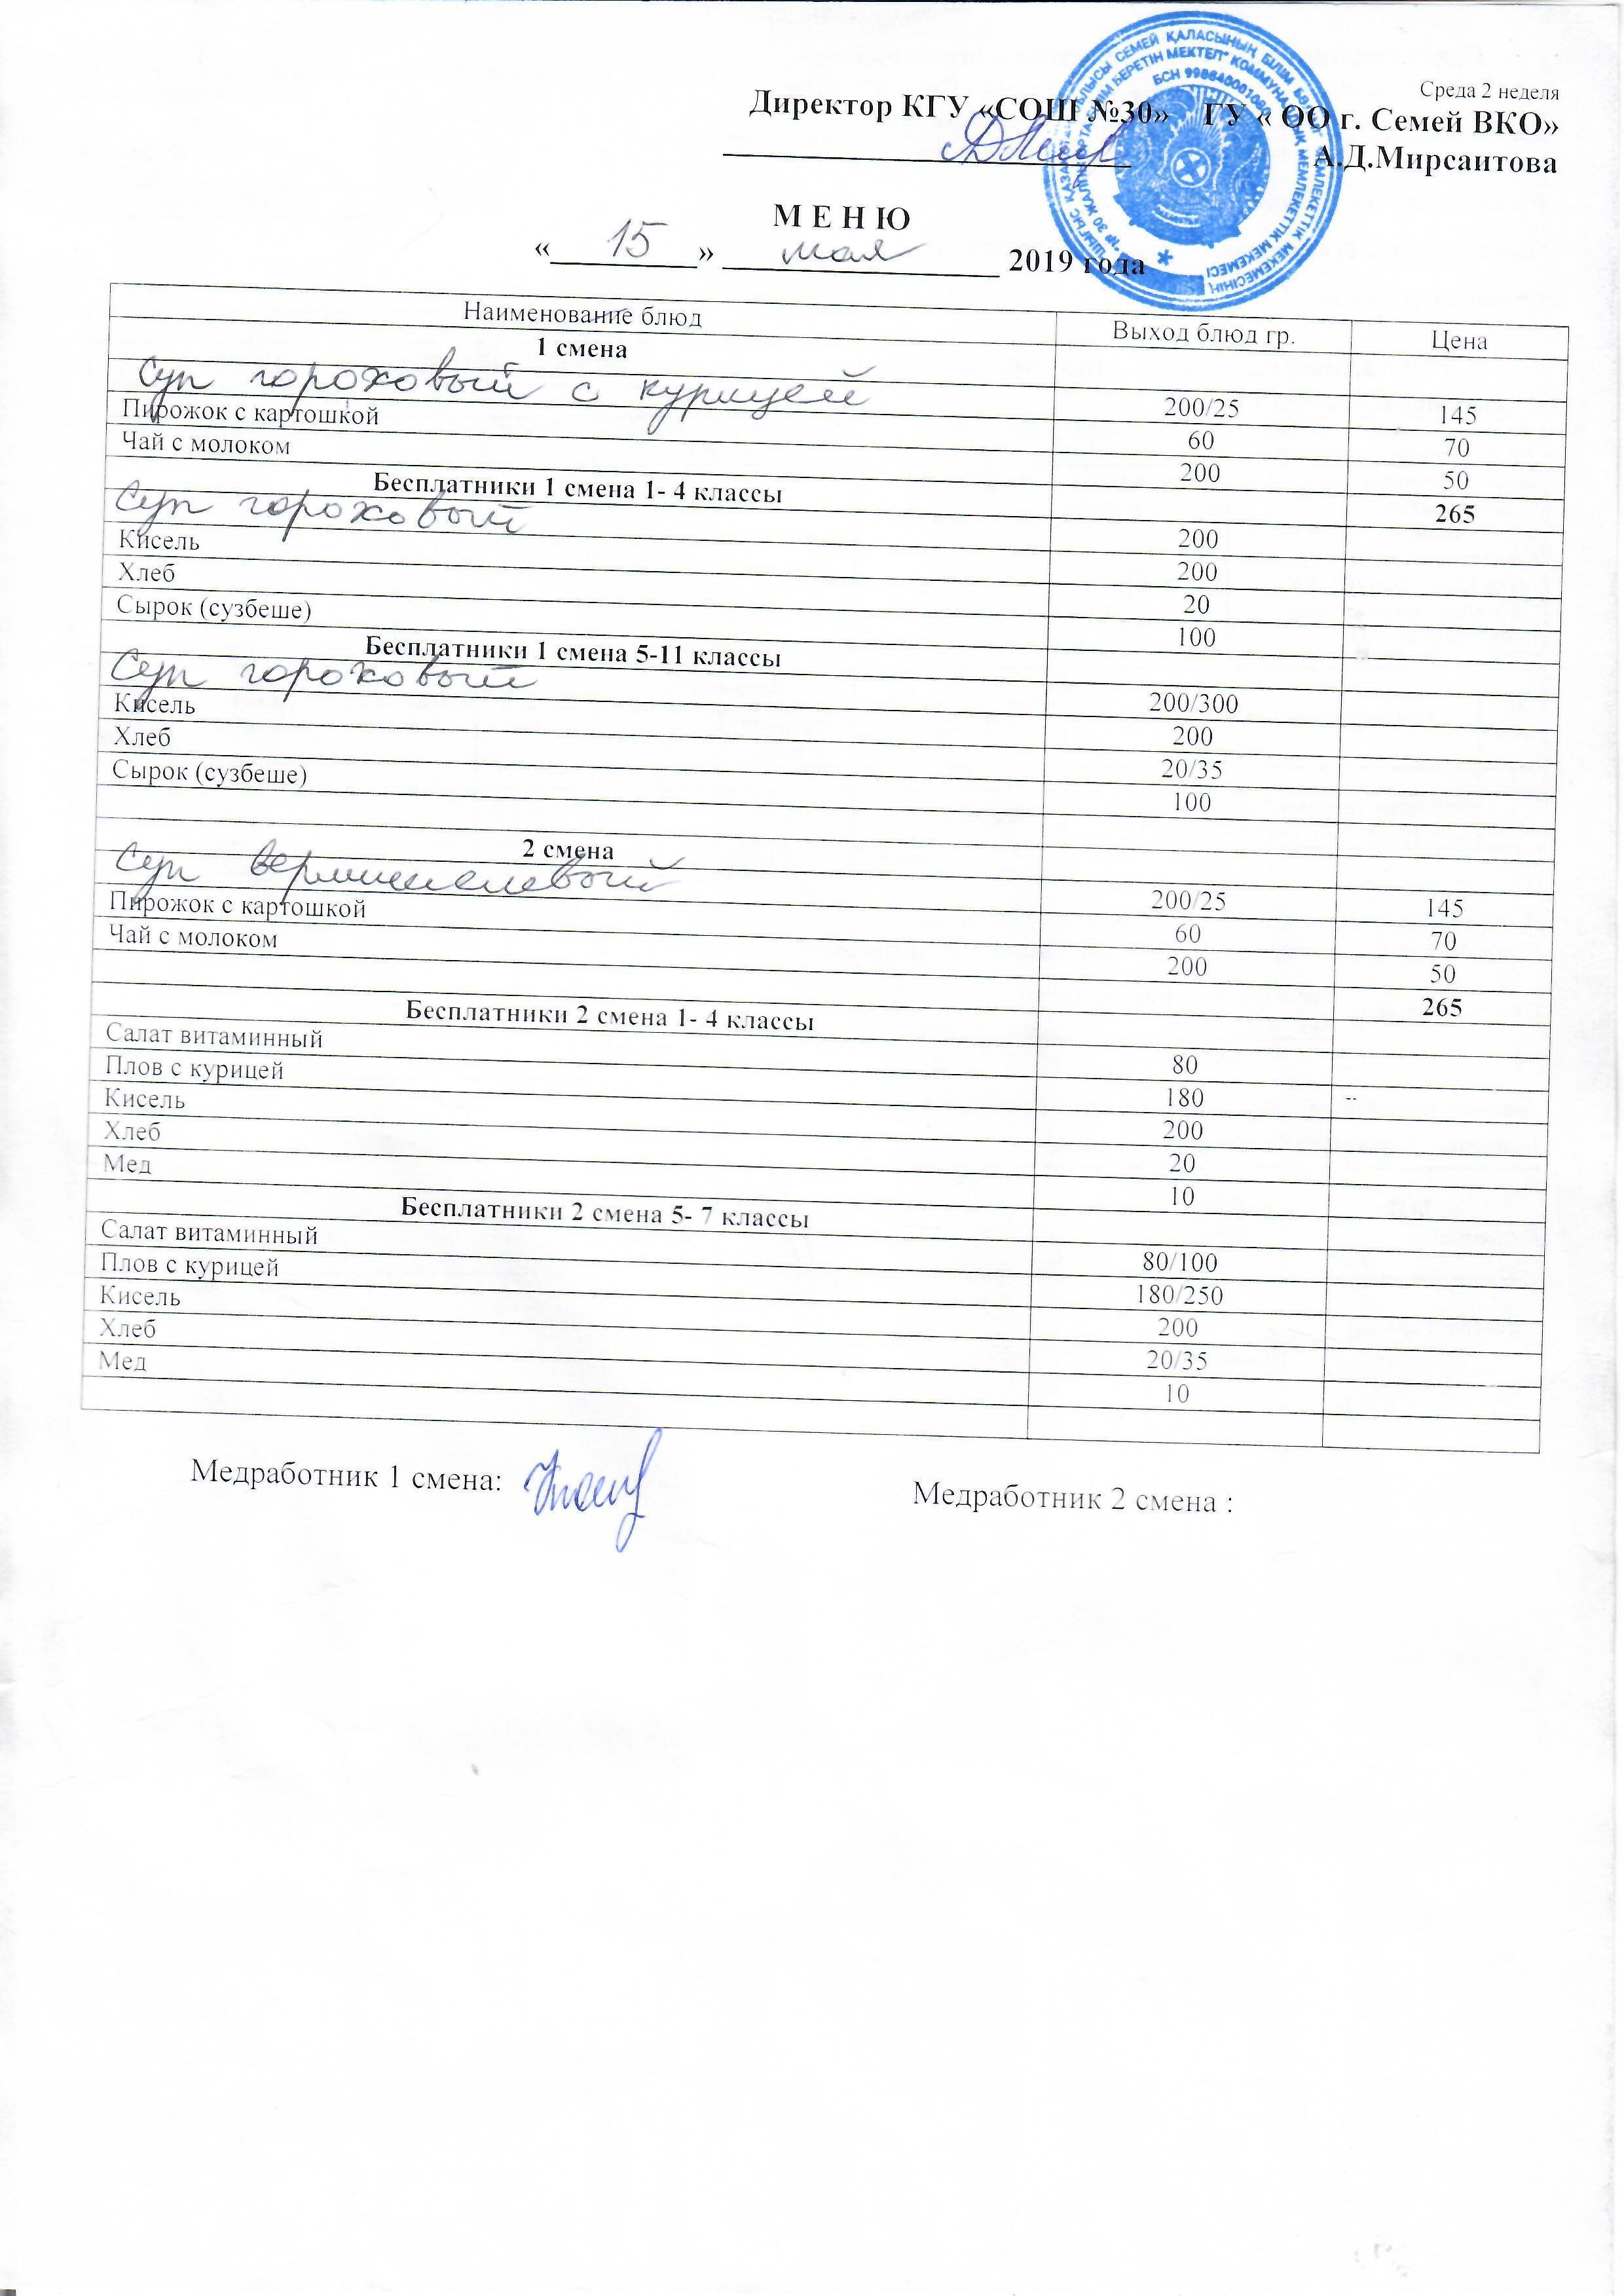 Среда 2 неделя
Директор КГУ «СОШ №30» ГУ « ОО г. Семей ВКО»
А.Д.Мирсаитова
М Е Н Ю
« 15 » мая 2019 года
Наименование блюд Выход блюд гр. Цена
1 смена
Суп гороховый с курицей 200/25 145
Пирожок с картошкой 60 70
Чай с молоком 200 50
Бесплатники 1 смена 1- 4 классы 265
Суп гороховый 200
Кисель 200
Хлеб 20
Сырок (сузбеше) 100
Бесплатники 1 смена 5-11 классы
Суп гороховый 200/300
Кисель 200
Хлеб 20/35
Сырок (сузбеше) 100
2 смена
Суп вермишелевый 200/25 145
Пирожок с картошкой 60 70
Чай с молоком 200 50
265
Бесплатники 2 смена 1- 4 классы
Салат витаминный 80
Плов с курицей 180 --
Кисель 200
Хлеб 20
Мед 10
Бесплатники 2 смена 5- 7 классы
Салат витаминный 80/100
Плов с курицей 180/250
Кисель 200
Хлеб 20/35
Мед 10
Медработник 1 смена:
Медработник 2 смена :